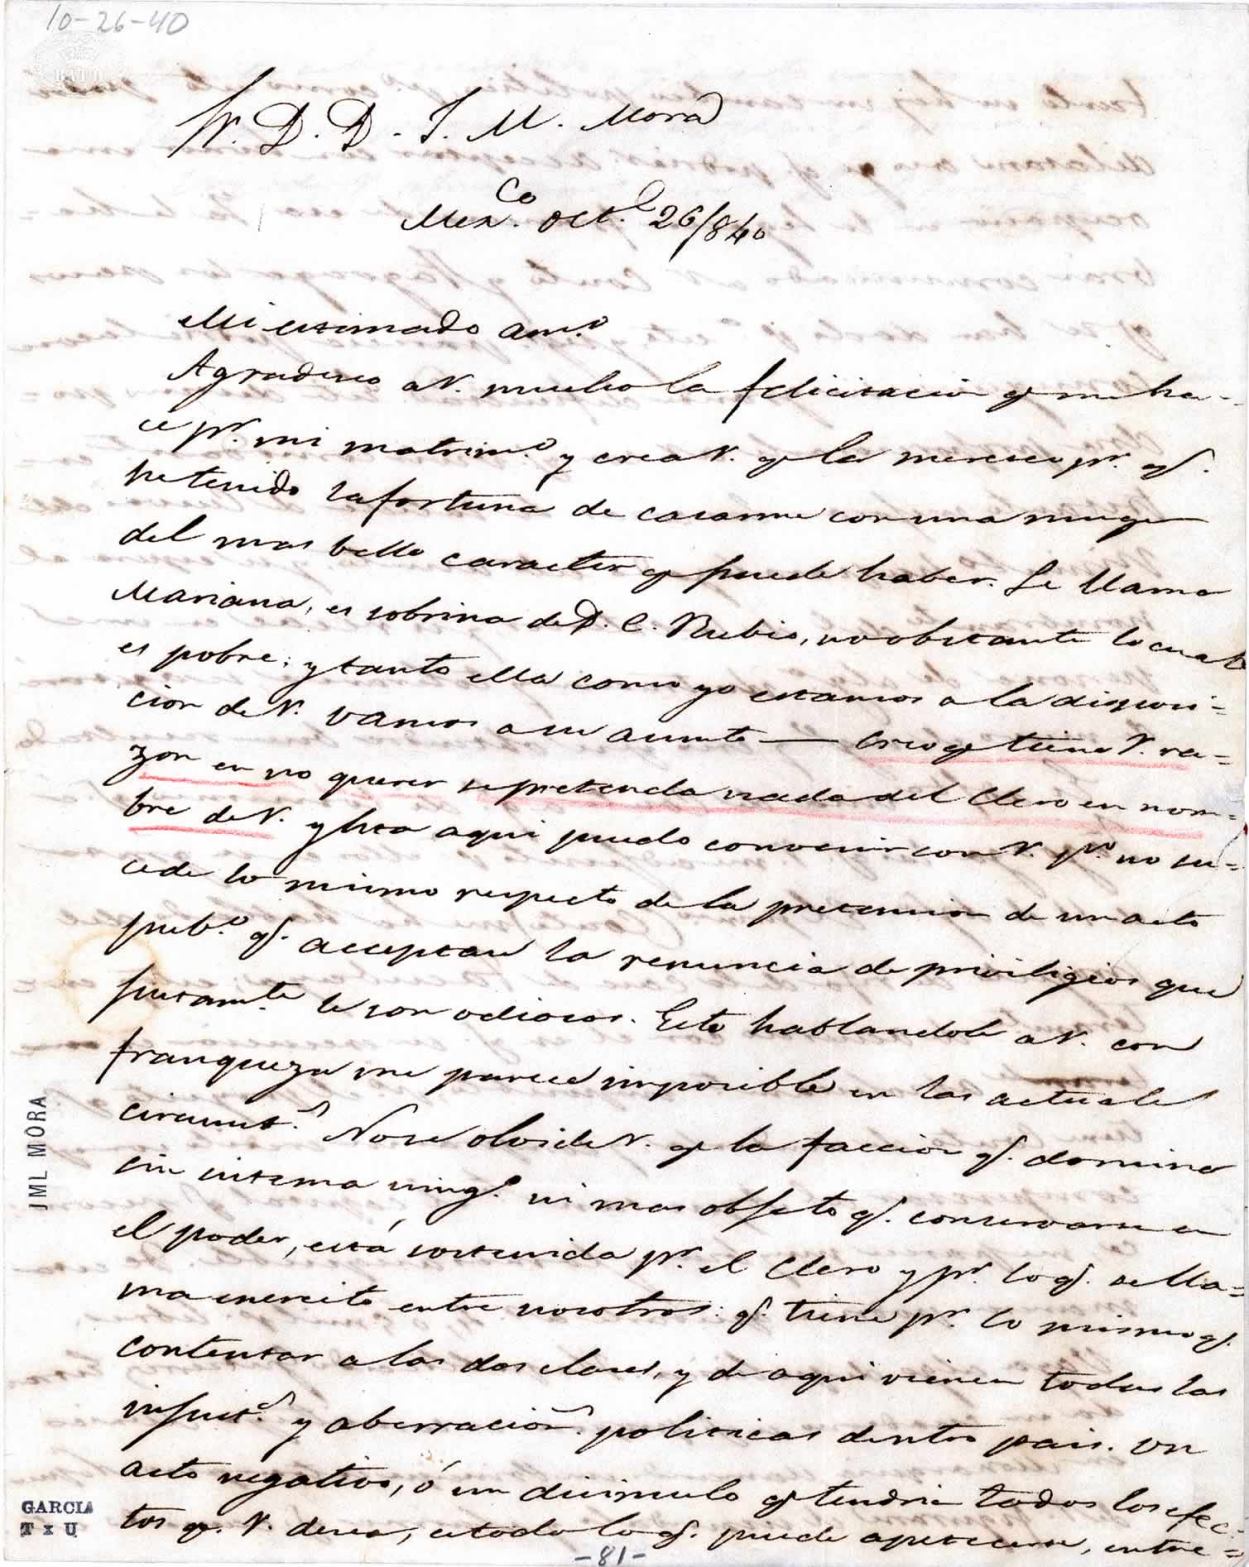 10-26-40
Sr. D. D. J. M. Mora
Mexco. Octe. 26/840
Mi estimado amo.
Agradesco a V. mucho la felicitacion qe me ha-
ce pr. mi matrimo. y crea V. qe la meresco pr. qe.
he tenido la fortuna de casarme con una muger
del mas bello caracter qe puede haber. Se llama
Mariana, es sobrina de D. C. Rubio, no obstante lo cual
es pobre; y tanto ella como yo estamos a la disposi-
cion de V. vamos a su asunto — Creo qe tiene V. ra-
zon en no querer se pretenda nada del Clero en nom-
bre de V. y hta aqui puedo convenir con V. po. no su-
cede lo mismo respecto de la pretension de un acto
pubco. qe. acceptase la renuncia de privilegios que
justamte. le son odiosos. Esto hablandole a V. con
franqueza me parece imposible en las actuales
circunsts. No se olvide V. qe la faccion qe. domina
sin sistema ningo. ni mas objeto qe. conservarse en
el poder, está sostenida pr. el Clero y pr. lo qe. se lla-
ma exercito entre nosotros: qe. tiene pr. lo mismo qe.
contentar a las dos clases, y de aqui vienen todas las
injusts. y aberracions. politicas dentro pais. Un
acto negativo, ó un disimulo qe tendria todos los efec-
tos qe. V. desea, es todo lo qe. puede apetecerse, entre
JML MORA
GARCIA
T x U
-81-